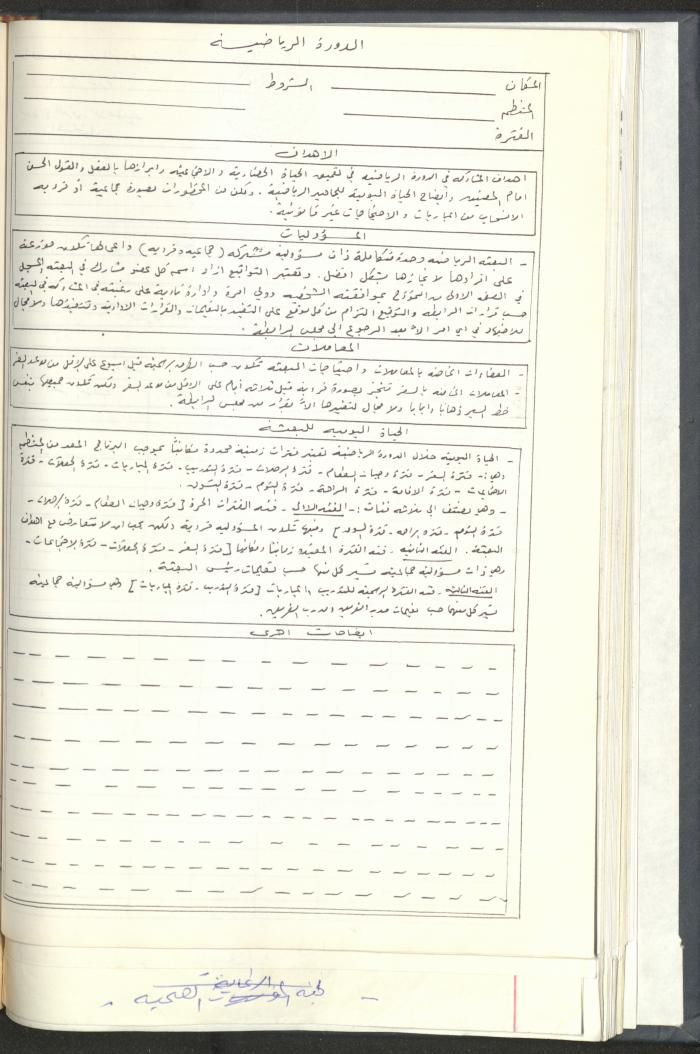 الدورة الرياضية
المكان
الشروط
المنظم
الفترة
الاهداف
اهداف المشاركة في الدورة الرياضية هي تعميق الحياة الحضارية والاجتماعية وابرازها بالعقل والقول الحسن
امام المضيفين وايضاح الحياة اليومية للجماهير الرياضية . وتكون من المحظورات بصورة جماعية أو فردية
الانسحاب من المباريات والاحتجاجات غير قانونية .
المسؤوليات
- البعثة الرياضية وحدة متكاملة ذات مسؤولية مشتركة ( جماعية وفردية ) واعمالها تكون موزعة
على افرادها لانجازها بشكل افضل . وتعتبر التواقيع ازاء اسم كل عضو مشارك في البعثة المسجل
في الصفحة الاولى من النموذج بموافقته الشخصية وولي امره وادارة ناديه على رغبته في المشاركة في البعثة
حسب قرارات الرابطة والتوقيع التزام من كل موقع على التقيد بالتعليمات والقرارات الادارية وتنفيذها ولا مجال
للاجتهاد في اي امر الا بعد الرجوع الى مجلس الرابطة .
المعاملات
- اللقاءات الخاصة بالمعاملات واحتياجات البعثة تكون حسب الطرق الرسمية قبل اسبوع على الاقل من موعد السفر
- المعاملات الخاصة بالسفر تنجز بصورة فردية قبل ثلاثة أيام على الاقل من موعد السفر وتكون جميعها بنفس
خط السير ذهابا وايابا ولا مجال لتغييرها الا بقرار من مجلس الرابطة .
الحياة اليومية للبعثة
- الحياة اليومية خلال الدورة الرياضية تعتبر فترات زمنية محددة مكانياً بموجب البرنامج المعد من المنظم
وهي :- فترة السفر - فترة وجبات الطعام - فترة الرحلات - فترة التدريب - فترة المباريات - فترة الحفلات - فترة
الاجتماعات - فترة الاقامة - فترة الراحة - فترة النوم - فترة التسوق .
- وهي تصنف الى ثلاثة فئات :- الفئة الاولى - فئة الفترات الحرة [ فترة وجبات الطعام - فترة الرحلات -
فترة النوم - فترة الراحة - فترة التسوق ] وفيها تكون المسؤولية فردية وتكون بحيث لا تتعارض مع اهداف
البعثة . الفئة الثانية - فئة الفترة المقيدة زمانيا ومكانيا [ فترة السفر - فترة الحفلات - فترة الاجتماعات -
وهي ذات مسؤولية جماعية تسير كل منها حسب تعليمات رئيس البعثة .
الفئة الثالثة - فئة الفترة الرسمية للتدريب والمباريات [ فترة التدريب - فترة المباريات ] وهي مسؤولية جماعية
تسير كل منهما حسب تعليمات مدير الفريق او مدرب الفريق .
ايضاحات اخرى
لجنة الرعاية الصحية